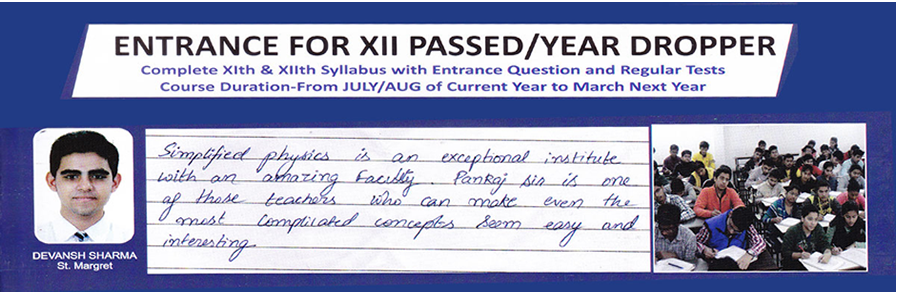 ENTRANCE FOR XII PASSED/YEAR DROPPER
Complete XIth & XIIth Syllabus with Entrance Question and Regular Tests
Course Duration-From JULY/AUG of Current Year to March Next Year
Simplified physics is an exceptional institute
with an amazing Faculty. Pankaj sir is one
of those teachers who can make even the
most complicated concepts seem easy and
interesting
DEVANSH SHARMA
St. Margret